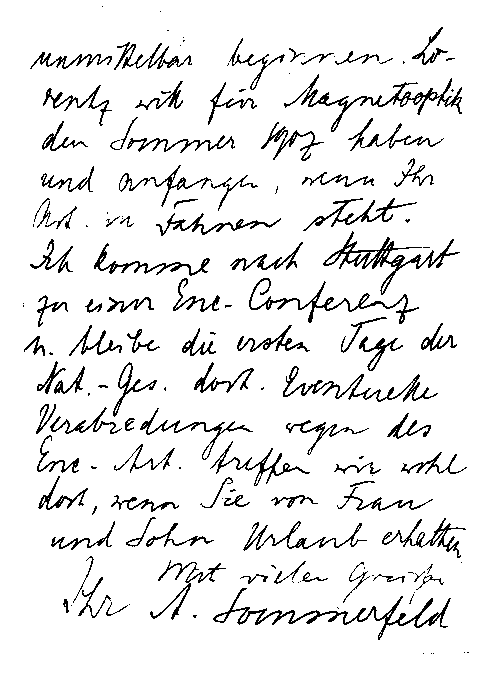 unmittelbar beginnen. Lo-
rentz will für Magnetooptik
den Sommer 1907 haben
und anfangen, wenn Ihr
Art. in Fahnen steht.
Ich komme nach Stuttgart
zu einer Enc-Conferenz
u. bleibe die ersten Tage der
Nat.-Ges. dort. Eventuelle
Verabredungen wegen des
Enc-Art. treffen wir wohl
dort, wenn Sie von Frau
und Sohn Urlaub erhalten
Mit vielen Grüßen
Ihr A. Sommerfeld